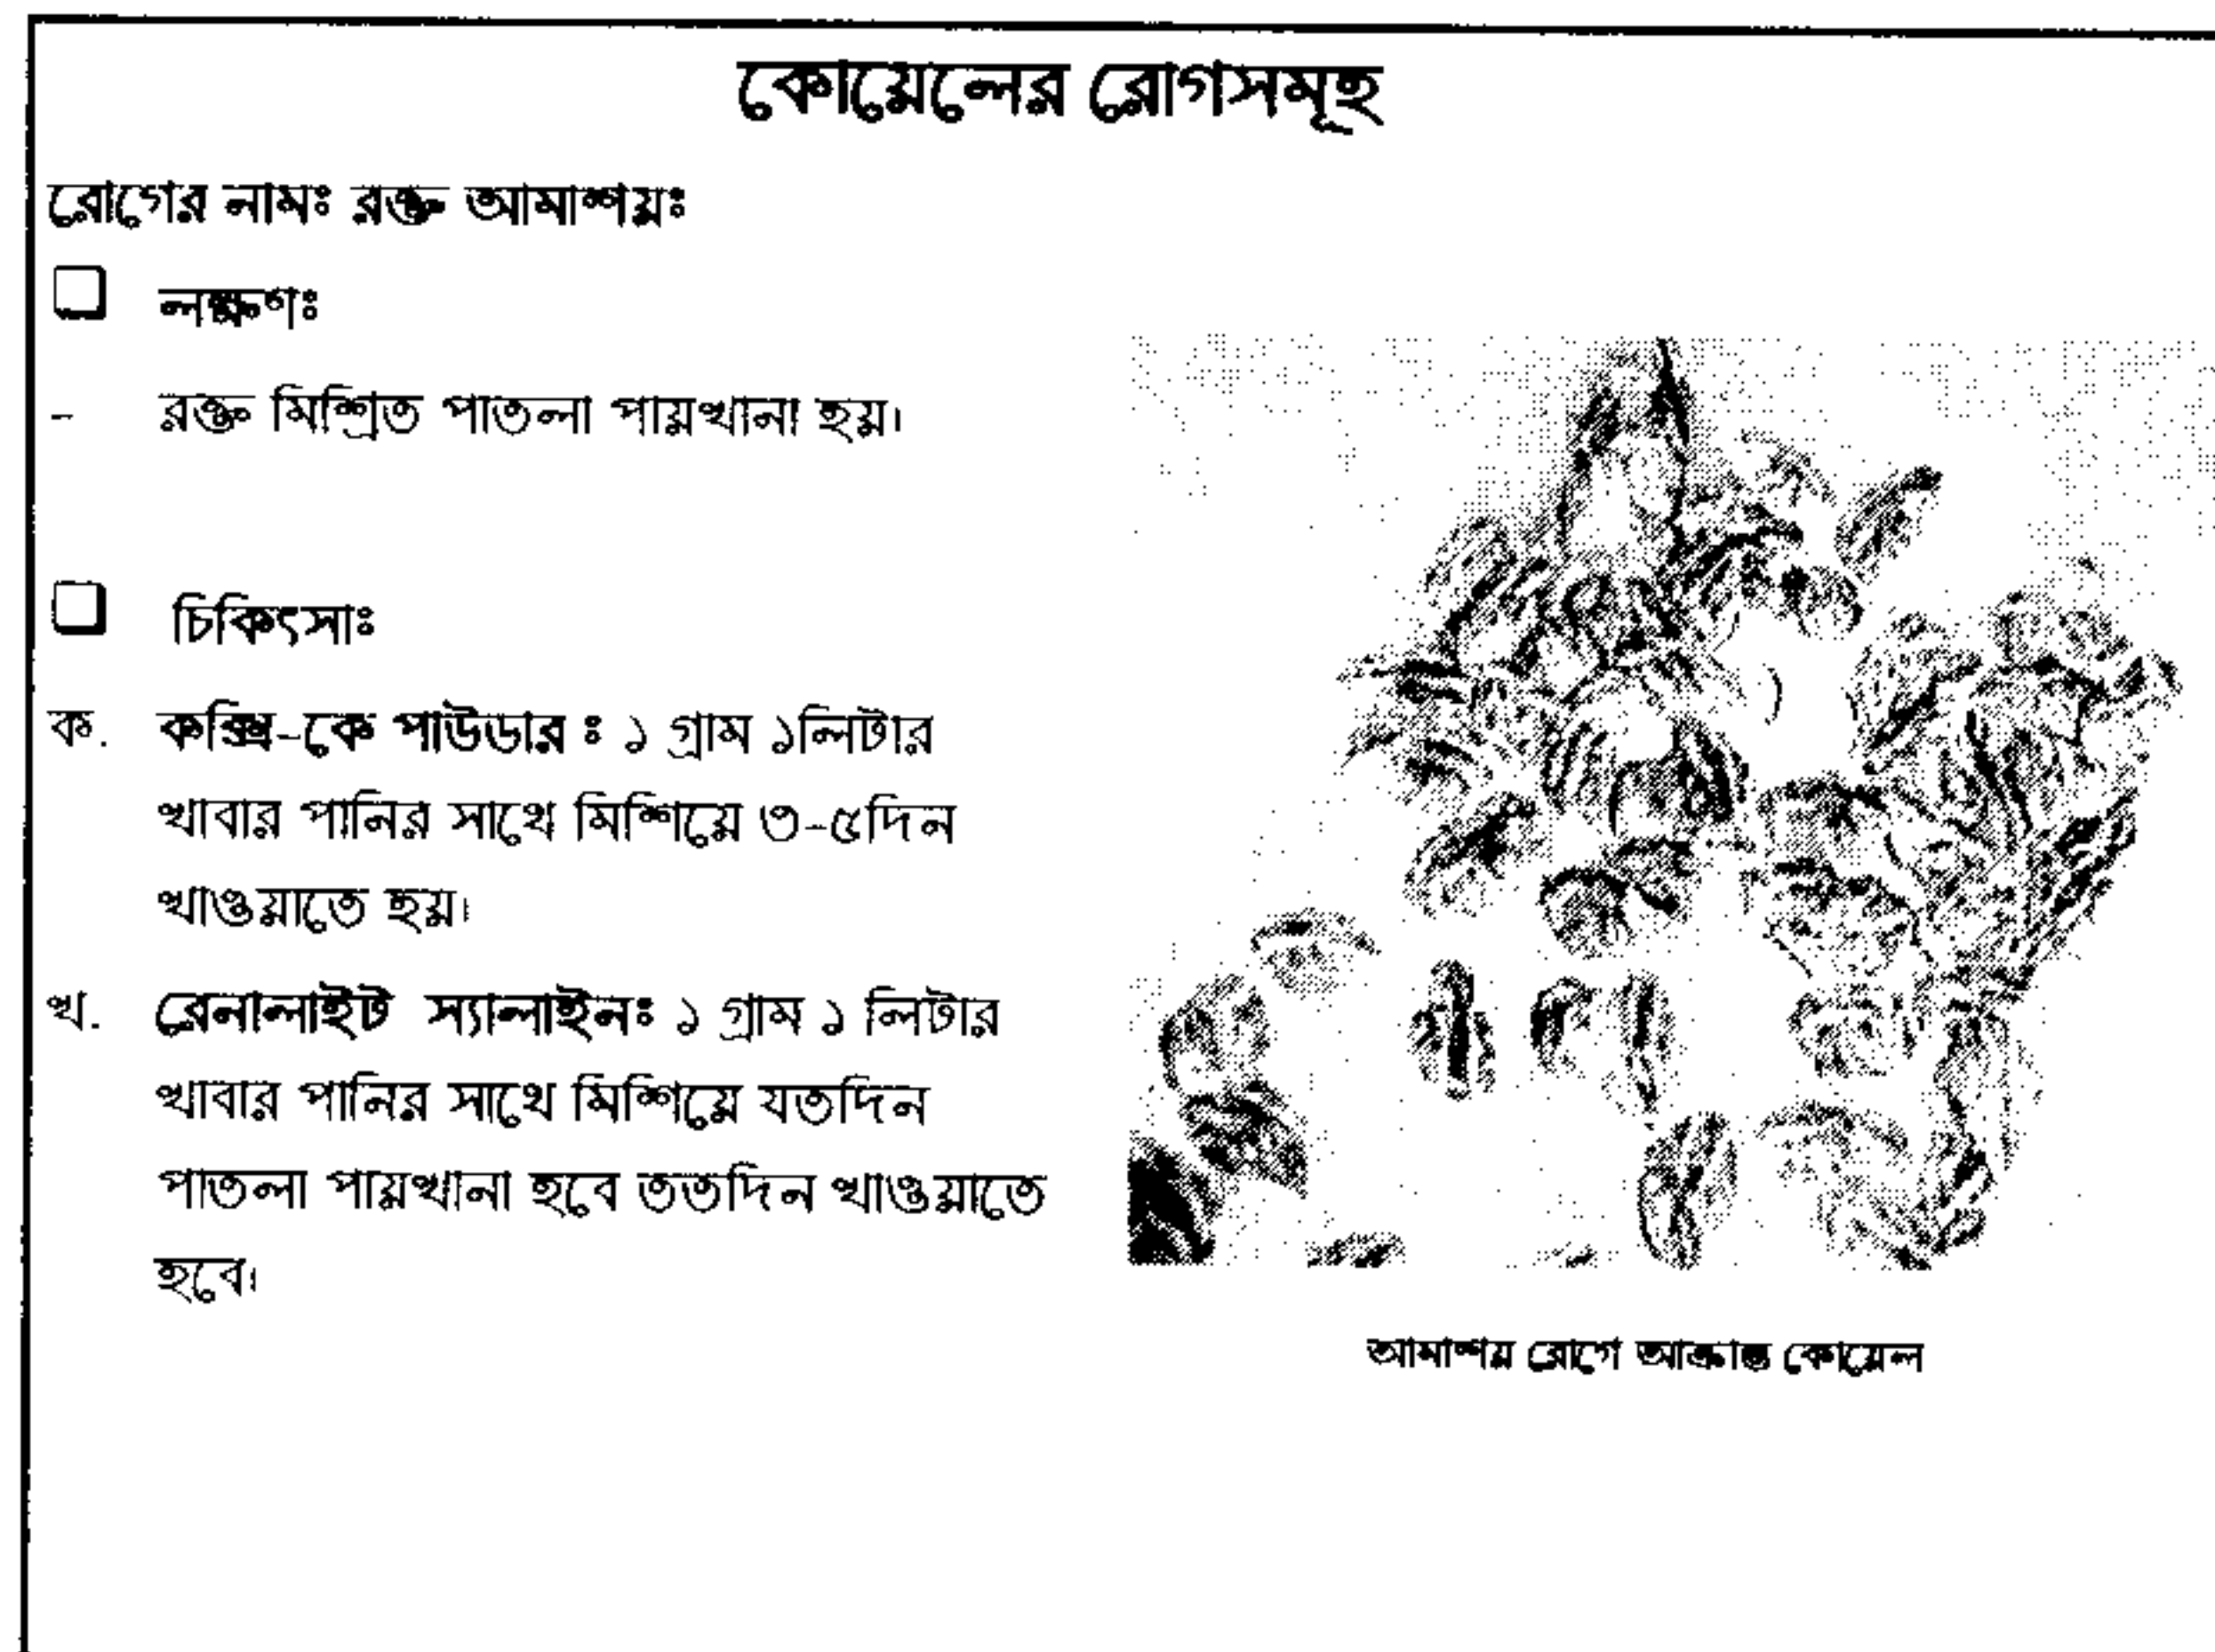 কোয়েলের রোগসমূহ
রোগের নামঃ রক্ত আমাশয়ঃ
লক্ষণঃ
- রক্ত মিশ্রিত পাতলা পায়খানা হয়।
চিকিৎসাঃ
ক. কক্সি-কে পাউডার ঃ ১ গ্রাম ১লিটার
খাবার পানির সাথে মিশিয়ে ৩-৫দিন
খাওয়াতে হয়।
খ. রেনালাইট স্যালাইনঃ ১ গ্রাম ১ লিটার
খাবার পানির সাথে মিশিয়ে যতদিন
পাতলা পায়খানা হবে ততদিন খাওয়াতে
হবে।
আমাশয় রোগে আক্রান্ত কোয়েল